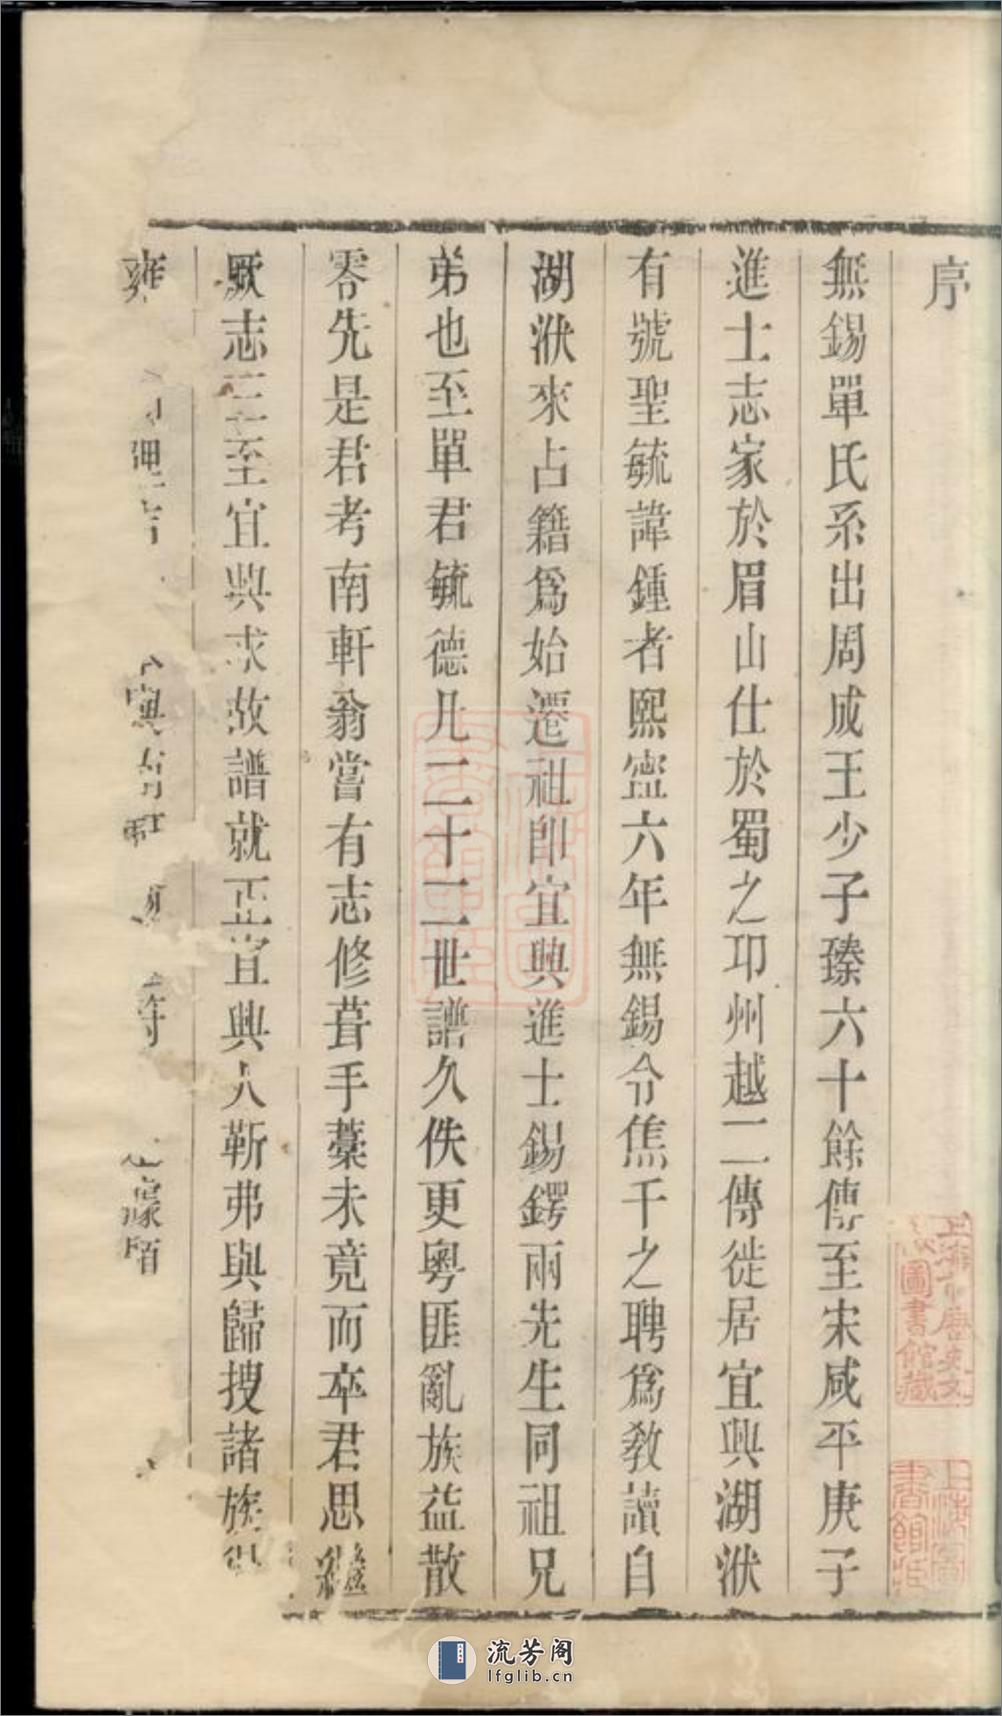 序
無錫單氏系出周成王少子臻六十餘傳至宋咸平庚子
進士志家於眉山仕於蜀之邛州越二傳徙居宜興湖㳇
有號聖毓諱鍾者熙寧六年無錫令焦千之聘爲教讀自
湖㳇來占籍爲始遷祖卽宜興進士錫鍔兩先生同祖兄
弟也至單君毓德凡二十二世譜久佚更粵匪亂族益散
零先是君考南軒翁嘗有志修葺手藁未竟而卒君思繼
厥志三至宜興求故譜就正宜興人靳弗與歸搜諸族
上海圖書館藏
流芳阁
lfglib.cn